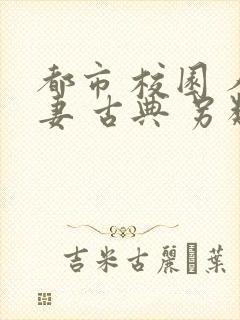 都市 校園
妻 古典 另
吉米古麗 葉